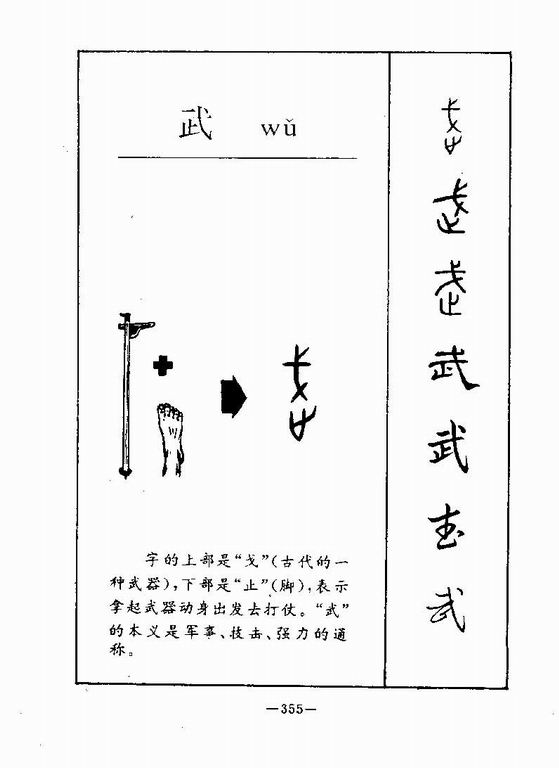 武 wǔ
字的上部是“戈”(古代的一
种武器),下部是“止”(脚),表示
拿起武器动身出发去打仗。“武”
的本义是军事、技击、强力的通
称。
武
武
武
武
武
武
武
—355—